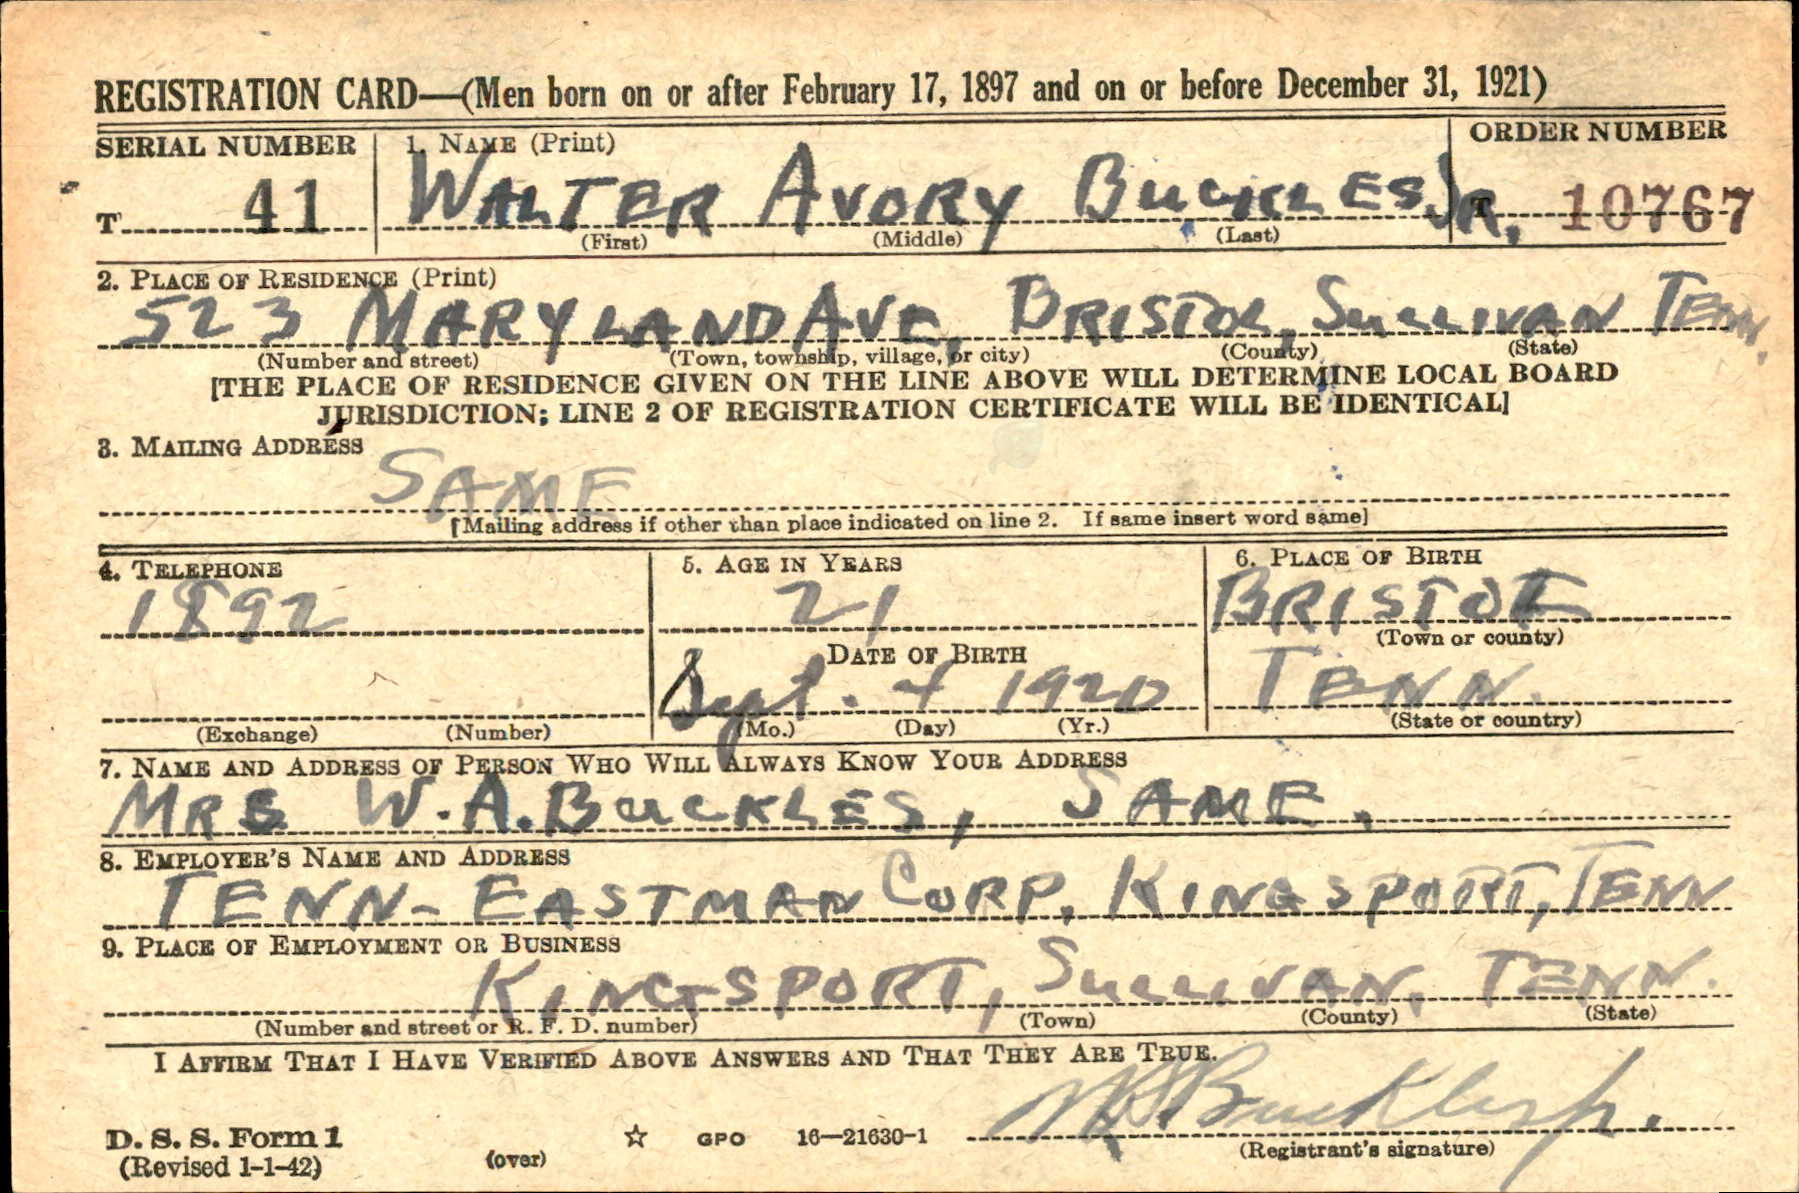 REGISTRATION CARD—(Men born on or after February 17, 1897 and on or before December 31, 1921)
SERIAL NUMBER 1. NAME (Print) ORDER NUMBER
T 41 WALTER AVORY BUCKLES JR. T 10767
(First) (Middle) (Last)
2. PLACE OF RESIDENCE (Print)
523 MARYLAND AVE, BRISTOL, SULLIVAN TENN.
(Number and street) (Town, township, village, or city) (County) (State)
[THE PLACE OF RESIDENCE GIVEN ON THE LINE ABOVE WILL DETERMINE LOCAL BOARD
JURISDICTION; LINE 2 OF REGISTRATION CERTIFICATE WILL BE IDENTICAL]
3. MAILING ADDRESS
SAME
[Mailing address if other than place indicated on line 2. If same insert word same]
4. TELEPHONE 5. AGE IN YEARS 6. PLACE OF BIRTH
1892 21 BRISTOL
(Town or county)
DATE OF BIRTH
Sept. 4 1920 TENN.
(Exchange) (Number) (Mo.) (Day) (Yr.) (State or country)
7. NAME AND ADDRESS OF PERSON WHO WILL ALWAYS KNOW YOUR ADDRESS
MRS W.A. BUCKLES, SAME.
8. EMPLOYER'S NAME AND ADDRESS
TENN-EASTMAN CORP. KINGSPORT, TENN
9. PLACE OF EMPLOYMENT OR BUSINESS
KINGSPORT, SULLIVAN, TENN.
(Number and street or R. F. D. number) (Town) (County) (State)
I AFFIRM THAT I HAVE VERIFIED ABOVE ANSWERS AND THAT THEY ARE TRUE.
W.A. Buckles Jr.
D. S. S. Form 1 ☆ GPO 16—21630-1 (Registrant's signature)
(Revised 1-1-42) (over)